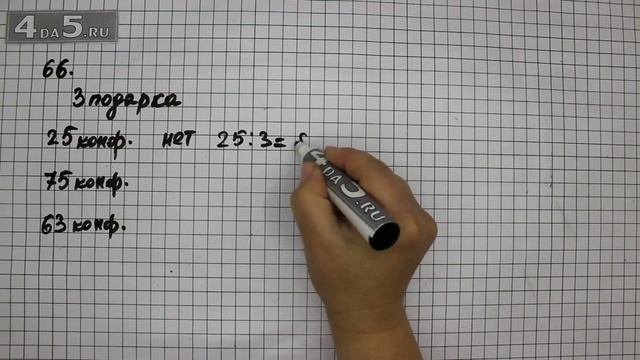 4DA5.RU
66.
3 подарка
25 конф. нет 25:3=
75 конф.
63 конф.
4DA5.RU